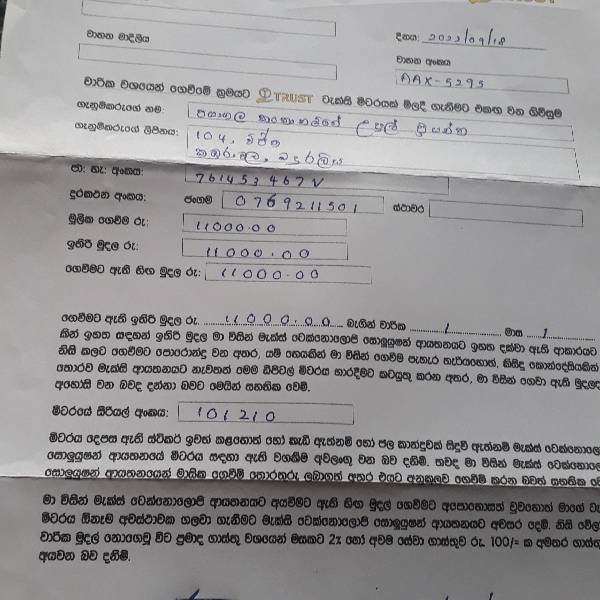 TRUST
වාහන මාදිලිය
දිනය: 2022/09/18
වාහන අංකය
AAX-5295
වාරික වශයෙන් ගෙවීමේ ක්‍රමයට TRUST ටැක්සි මීටරයක් මිලදී ගැනීමට එකඟ වන ගිවිසුම
ගැනුම්කරුගේ නම: උපුල් ප්‍රියන්ත
ගැනුම්කරුගේ ලිපිනය: 104,
පා: හැ: අංකය: 761453467V
දුරකථන අංකය: ජංගම 0769211501 ස්ථාවර
මූලික ගෙවීම රු: 11000.00
ඉතිරි මුදල රු: 11000.00
ගෙවීමට ඇති හිඟ මුදල රු: 11000.00
ගෙවීමට ඇති ඉතිරි මුදල රු. 11000.00 බැගින් වාරික 1 මාස 1
කින් ඉහත සඳහන් ඉතිරි මුදල මා විසින් මැක්ස් ටෙක්නොලොජි සොලූෂන් ආයතනයට ඉහත දක්වා ඇති ආකාරයට
නිසි කලට ගෙවීමට පොරොන්දු වන අතර, යම් හෙයකින් මා විසින් ගෙවීම් පැහැර හැරියහොත්, කිසිදු කොන්දේසියකින්
තොරව මැක්සි ආයතනයට නැවතත් මෙම ඩිජිටල් මීටරය භාරදීමට කටයුතු කරන අතර, මා විසින් ගෙවා ඇති මුදල
අහෝසි වන බවද දන්නා බවට මෙයින් සහතික වෙමි.
මීටරයේ සීරියල් අංකය: 101210
මීටරය දෙපස ඇති ස්ටිකර් ඉවත් කළහොත් හෝ කැඩී ඇත්නම් හෝ ජල කාන්දුවක් සිදුවී ඇත්නම් මැක්ස් ටෙක්නොලො
සොලූෂන් ආයතනයේ මීටරය සඳහා ඇති වගකීම අවලංගු වන බව දනිමි. තවද මා විසින් මැක්ස් ටෙක්නොලො
සොලූෂන් ආයතනයෙන් මාසික ගෙවීම් තොරතුරු ලබාගත් අතර එයට අනුකූලව ගෙවීම් කරන බවත් සහතික වෙ
මා විසින් මැක්ස් ටෙක්නොලොජි ආයතනයට අයවීමට ඇති හිඟ මුදල් ගෙවීමට අපොහොසත් වුවහොත් මාගේ
මීටරය ඕනෑම අවස්ථාවක ගලවා ගැනීමට මැක්සි ටෙක්නොලොජි සොලූෂන් ආයතනයට අවසර දෙමි. නිසි වේලා
වාරික මුදල් නොගෙවූ විට ප්‍රමාද ගාස්තු වශයෙන් මසකට 2% හෝ අවම සේවා ගාස්තුව රු. 100/= ක අමතර ගාස්
අයවන බව දනිමි.